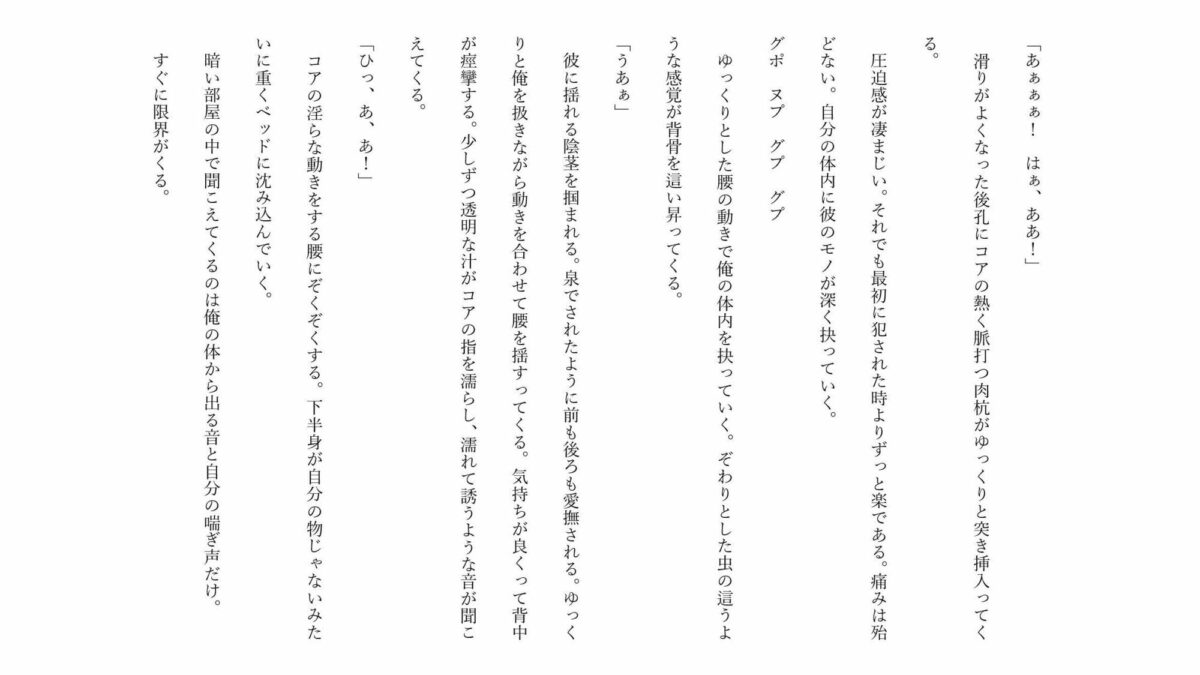 「あぁぁぁ！　はぁ、ああ！」
滑りがよくなった後孔にコアの熱く脈打つ肉杭がゆっくりと突き挿入ってく
る。
圧迫感が凄まじい。それでも最初に犯された時よりずっと楽である。痛みは殆
どない。自分の体内に彼のモノが深く抉っていく。
グポ　ヌプ　グプ　グプ
ゆっくりとした腰の動きで俺の体内を抉っていく。ぞわりとした虫の這うよ
うな感覚が背骨を這い昇ってくる。
「うあぁ」
彼に揺れる陰茎を掴まれる。泉でされたように前も後ろも愛撫される。ゆっく
りと俺を扱きながら動きを合わせて腰を揺すってくる。気持ちが良くって背中
が痙攣する。少しずつ透明な汁がコアの指を濡らし、濡れて誘うような音が聞こ
えてくる。
「ひっ、あ、あ！」
コアの淫らな動きをする腰にぞくぞくする。下半身が自分の物じゃないみた
いに重くベッドに沈み込んでいく。
暗い部屋の中で聞こえてくるのは俺の体から出る音と自分の喘ぎ声だけ。
すぐに限界がくる。